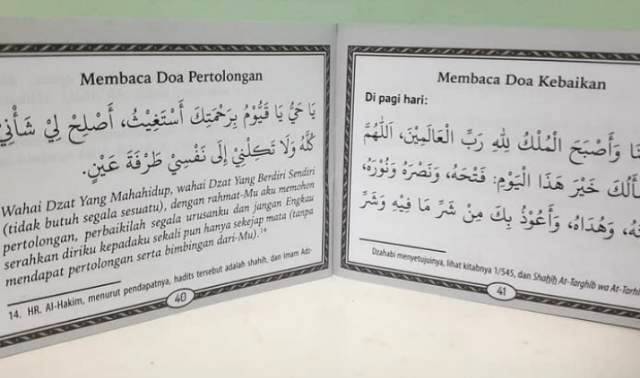 Membaca Doa Pertolongan
يَا حَيُّ يَا قَيُّوْمُ بِرَحْمَتِكَ أَسْتَغِيْثُ، أَصْلِحْ لِيْ شَأْنِيْ
كُلَّهُ وَلَا تَكِلْنِيْ إِلَى نَفْسِيْ طَرْفَةَ عَيْنٍ.
Wahai Dzat Yang Mahahidup, wahai Dzat Yang Berdiri Sendiri
(tidak butuh segala sesuatu), dengan rahmat-Mu aku memohon
pertolongan, perbaikilah segala urusanku dan jangan Engkau
serahkan diriku kepadaku sekali pun hanya sekejap mata (tanpa
mendapat pertolongan serta bimbingan dari-Mu).¹⁴
14. HR. Al-Hakim, menurut pendapatnya, hadits tersebut adalah shahih, dan Imam Adz-
40
Membaca Doa Kebaikan
Di pagi hari:
وَأَصْبَحَ الْمُلْكُ لِلَّهِ رَبِّ الْعَالَمِيْنَ، اَللَّهُمَّ
خَيْرَ هَذَا الْيَوْمِ: فَتْحَهُ، وَنَصْرَهُ وَنُوْرَهُ،
وَهُدَاهُ، وَأَعُوْذُ بِكَ مِنْ شَرِّ مَا فِيْهِ وَشَرِّ
Dzahabi menyetujuinya, lihat kitabnya 1/545, dan Shahih At-Targhib wa At-Tarhi
41